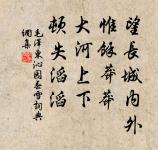 望長城內外
惟餘莽莽
大河上下
頓失滔滔
毛澤東沁園春雪詞典
網集